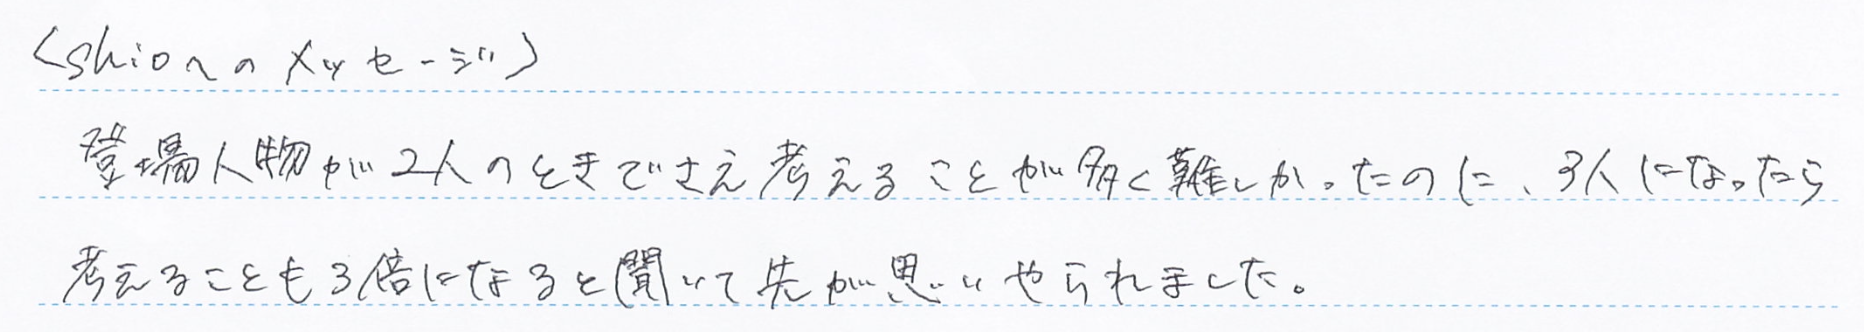 〈shioへのメッセージ〉
登場人物が2人のときでさえ考えることが多く難しかったのに、3人になったら
考えることも3倍になると聞いて先が思いやられました。